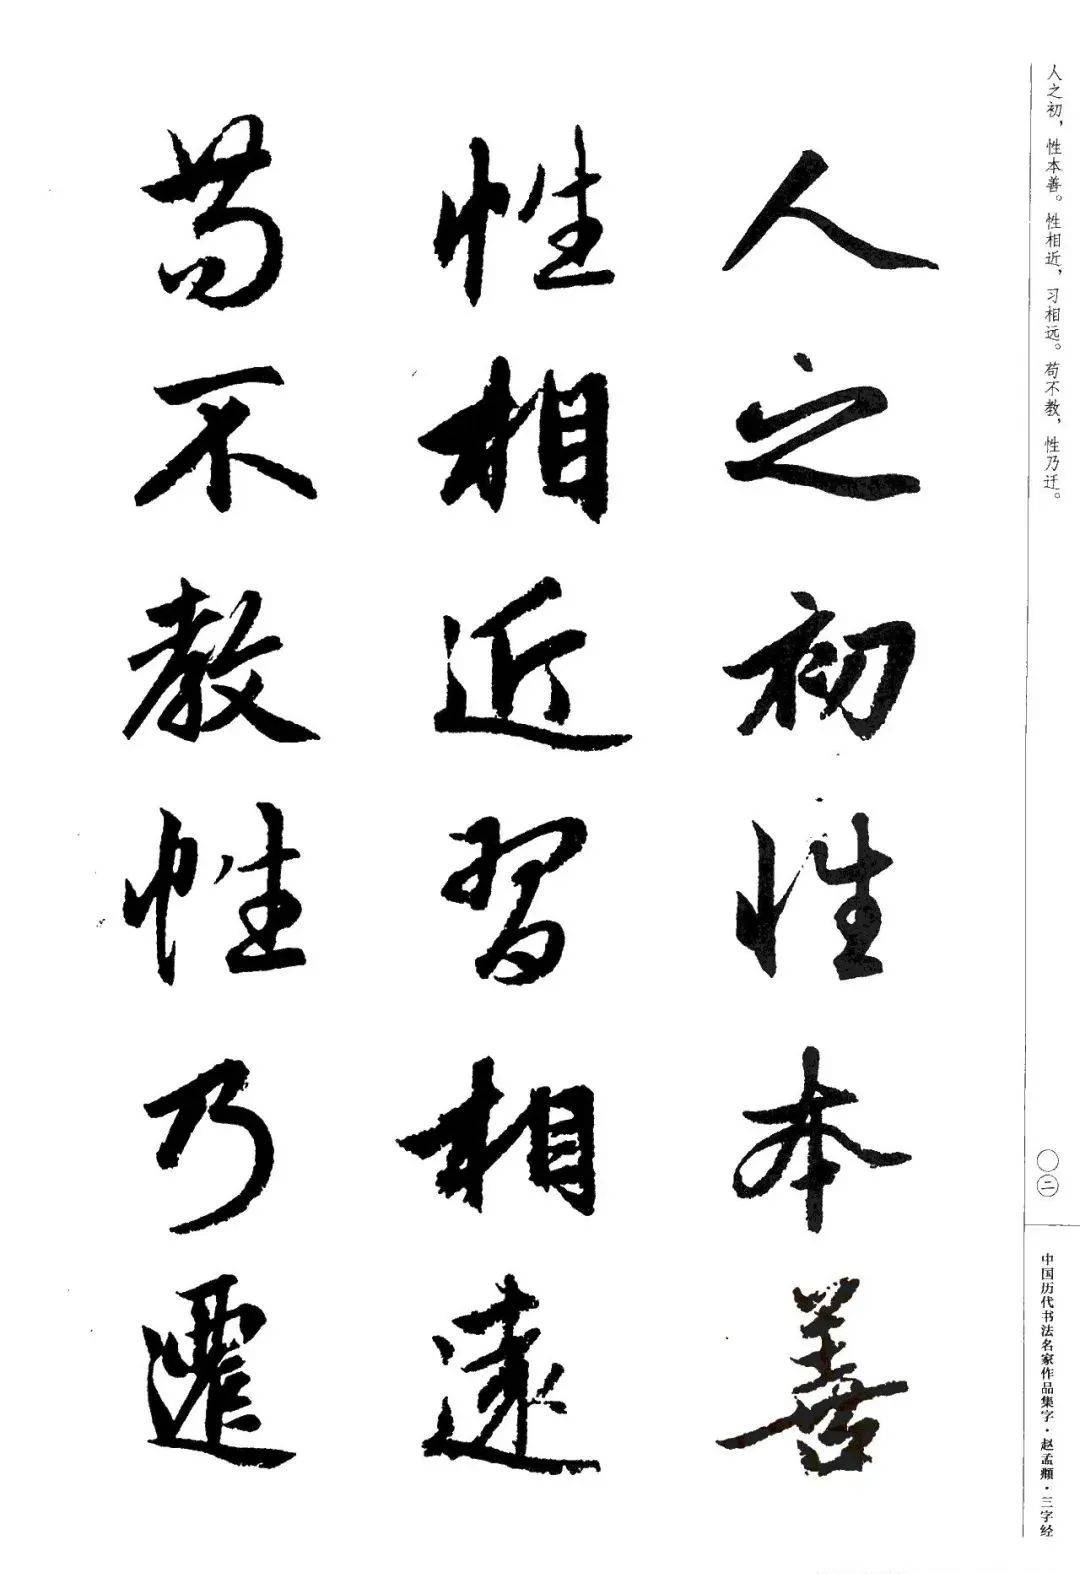 人之初，性本善。性相近，习相远。苟不教，性乃迁。
人之初性本善
性相近習相遠
苟不教性乃遷
〇二
中国历代书法名家作品集字·赵孟頫·三字经